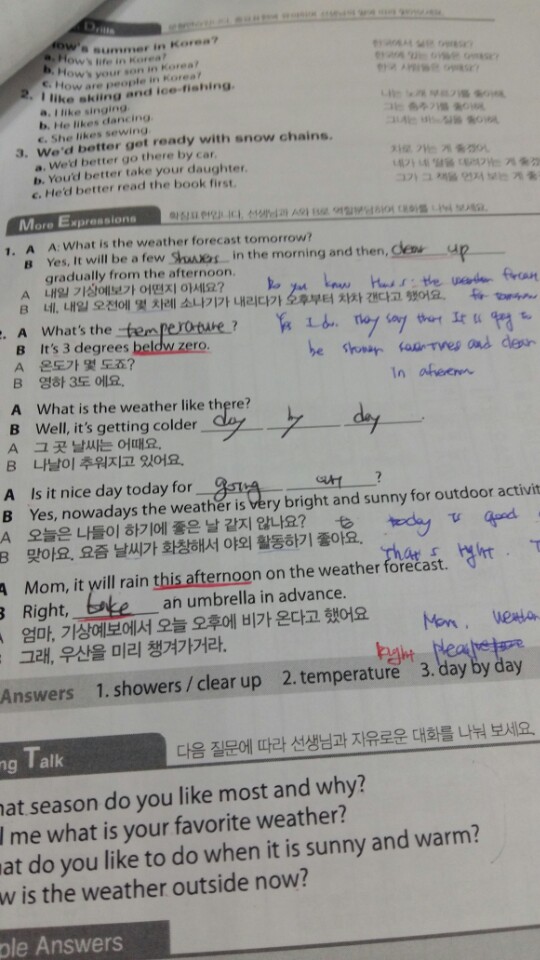 Drills
How's summer in Korea?
a. How's life in Korea?
b. How's your son in Korea?
c. How are people in Korea?
2. I like skiing and ice-fishing.
a. I like singing.
b. He likes dancing.
c. She likes sewing.
3. We'd better get ready with snow chains.
a. We'd better go there by car.
b. You'd better take your daughter.
c. He'd better read the book first.
차로 가는 게 좋겠어.
네가 네 딸을 데려가는 게 좋겠
그가 그 책을 먼저 보는 게 좋
More Expressions
확장표현입니다. 선생님과 A와 B로 역할분담하여 대화를 나눠 보세요.
1. A A: What is the weather forecast tomorrow?
B Yes, It will be a few showers in the morning and then, clear up
gradually from the afternoon.
A 내일 기상예보가 어떤지 아세요?
B 네. 내일 오전에 몇 차례 소나기가 내리다가 오후부터 차차 갠다고 했어요.
Do you know How's the weather
for tomorrow
Yes I do. They say that It is going to
be shower sometimes and clear
In
2. A What's the temperature?
B It's 3 degrees below zero.
A 온도가 몇 도죠?
B 영하 3도 에요.
A What is the weather like there?
B Well, it's getting colder day by day.
A 그 곳 날씨는 어때요.
B 나날이 추워지고 있어요.
A Is it nice day today for going out?
B Yes, nowadays the weather is very bright and sunny for outdoor activit
A 오늘은 나들이 하기에 좋은 날 같지 않나요?
B 맞아요. 요즘 날씨가 화창해서 야외 활동하기 좋아요.
today is good
That's right.
A Mom, it will rain this afternoon on the weather forecast.
B Right, take an umbrella in advance.
엄마, 기상예보에서 오늘 오후에 비가 온다고 했어요
그래, 우산을 미리 챙겨가거라.
Mom,
Right
Answers 1. showers / clear up 2. temperature 3. day by day
ng Talk
다음 질문에 따라 선생님과 자유로운 대화를 나눠 보세요.
hat season do you like most and why?
l me what is your favorite weather?
hat do you like to do when it is sunny and warm?
w is the weather outside now?
ple Answers